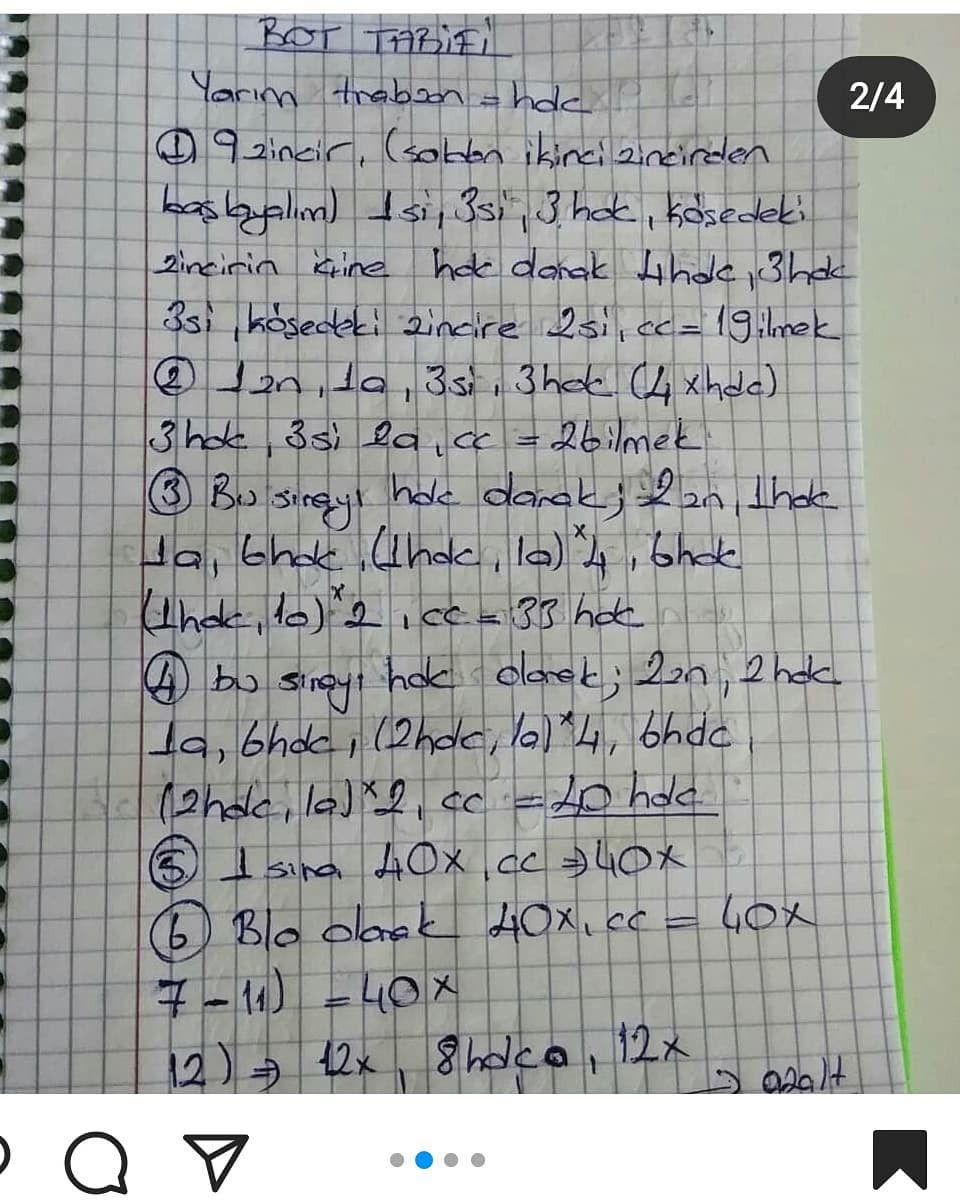 BOT TARİFİ
Yarım trabzan = hdc
2/4
① 9 zincir, (soldan ikinci zincirden
başlayalım) 1si, 3si, 3 hdc, köşedeki
zincirin içine hdc olarak 4hdc, 3hdc
3si, köşedeki zincire 2si, cc = 19ilmek
② 1zn, 1a, 3si, 3hdc (4xhdc)
3hdc, 3si 2a, cc = 26ilmek
③ Bu sırayı hdc olarak; 2zn, 1hdc
1a, 6hdc, (1hdc, 1a)x4, 6hdc
(1hdc, 1a)x2, cc = 33 hdc
④ bu sırayı hdc olarak; 2zn, 2hdc
1a, 6hdc, (2hdc, 1a)x4, 6hdc,
(2hdc, 1a)x2, cc = 40 hdc
⑤ 1 sıra 40x, cc ⇒ 40x
⑥ Blo olarak 40x, cc = 40x
7 - 11) = 40x
12) ⇒ 12x, 8hdça, 12x
→ azalt